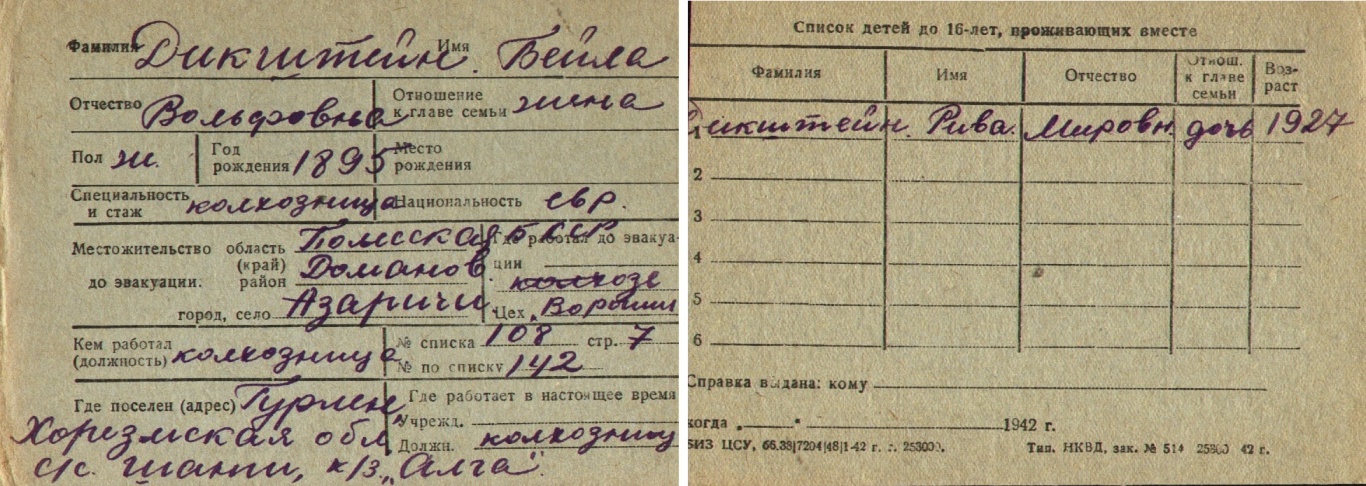 Фамилия Дикштейн. Имя Бейла
Отчество Вольфовна Отношение к главе семьи жена
Пол ж. Год рождения 1895 Место рождения
Специальность и стаж колхозница Национальность евр.
Местожительство до эвакуации. область (край) Полесская БССР Где работал до эвакуа-
район Доманов. ции колхозе
город, село Азаричи. Цех „Вороши
Кем работал (должность) колхозница № списка 108 стр. 7
№ по списку 142
Где поселен (адрес) Гурлен, Где работает в настоящее время
Хорезмская обл. Учрежд.
Должн. колхозниц
с/с. к/з. „Алга".
Список детей до 16-лет, проживающих вместе
Фамилия Имя Отчество Отнош. к главе семьи Воз-раст
1 Дикштейн. Рива. Мировн. дочь 1927
2
3
4
5
6
Справка выдана: кому
когда „ " 1942 г.
БИЗ ЦСУ, 66.38|7204|48|1-42 г. г. Тип. НКВД, зак. № 514 42 г.